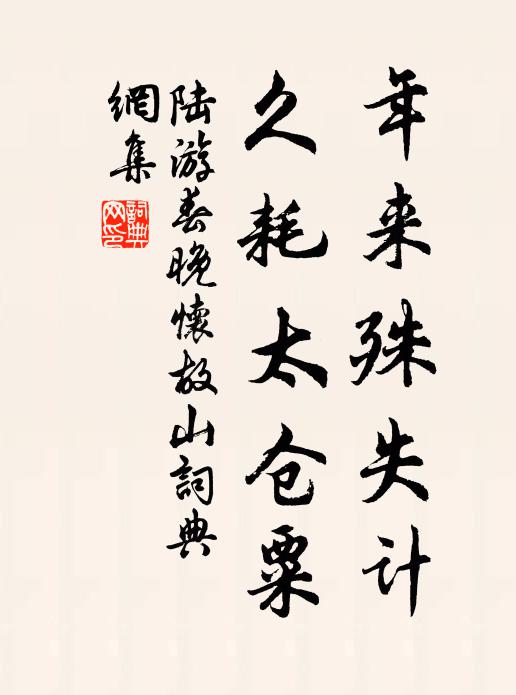 年来殊失计
久耗太仓粟
陆游春晚怀故山詞典
網集
詞典
网印